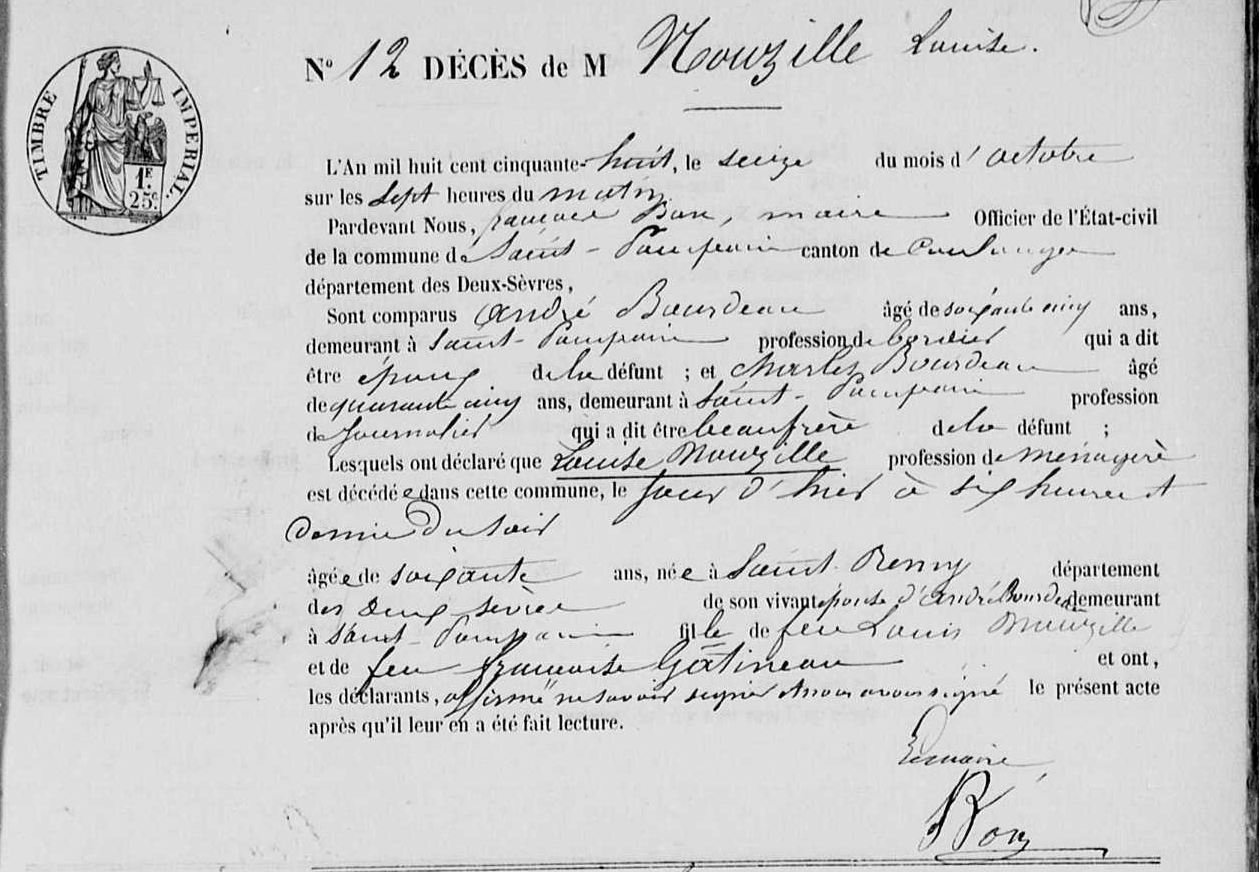 TIMBRE IMPERIAL.
1F.
25c.
No 12 DÉCÈS de M Nouzille Louise.
L'An mil huit cent cinquante-huit, le seize du mois d'octobre
sur les sept heures du matin
Pardevant Nous, Bon, maire Officier de l'État-civil
de la commune de Saint-Pompain canton de Coulonges
département des Deux-Sèvres,
Sont comparus André Bourdeau âgé de soixante cinq ans,
demeurant à Saint-Pompain profession de bordier qui a dit
être époux de la défunt ; et Charles Bourdeau âgé
de quarante cinq ans, demeurant à Saint-Pompain profession
de Journalier qui a dit être beaufrère de la défunt ;
Lesquels ont déclaré que Louise Nouzille profession de ménagère
est décédée dans cette commune, le jour d'hier à six heures et
demie du soir
âgée de soixante ans, née à Saint Remy département
des deux sèvres de son vivant épouse d'André Bourdeau demeurant
à Saint-Pompain fille de feu Louis Nouzille
et de feu françoise Gâtineau et ont,
les déclarants, affirmé ne savoir signer et nous avons signé le présent acte
après qu'il leur en a été fait lecture.
Le maire,
Bon